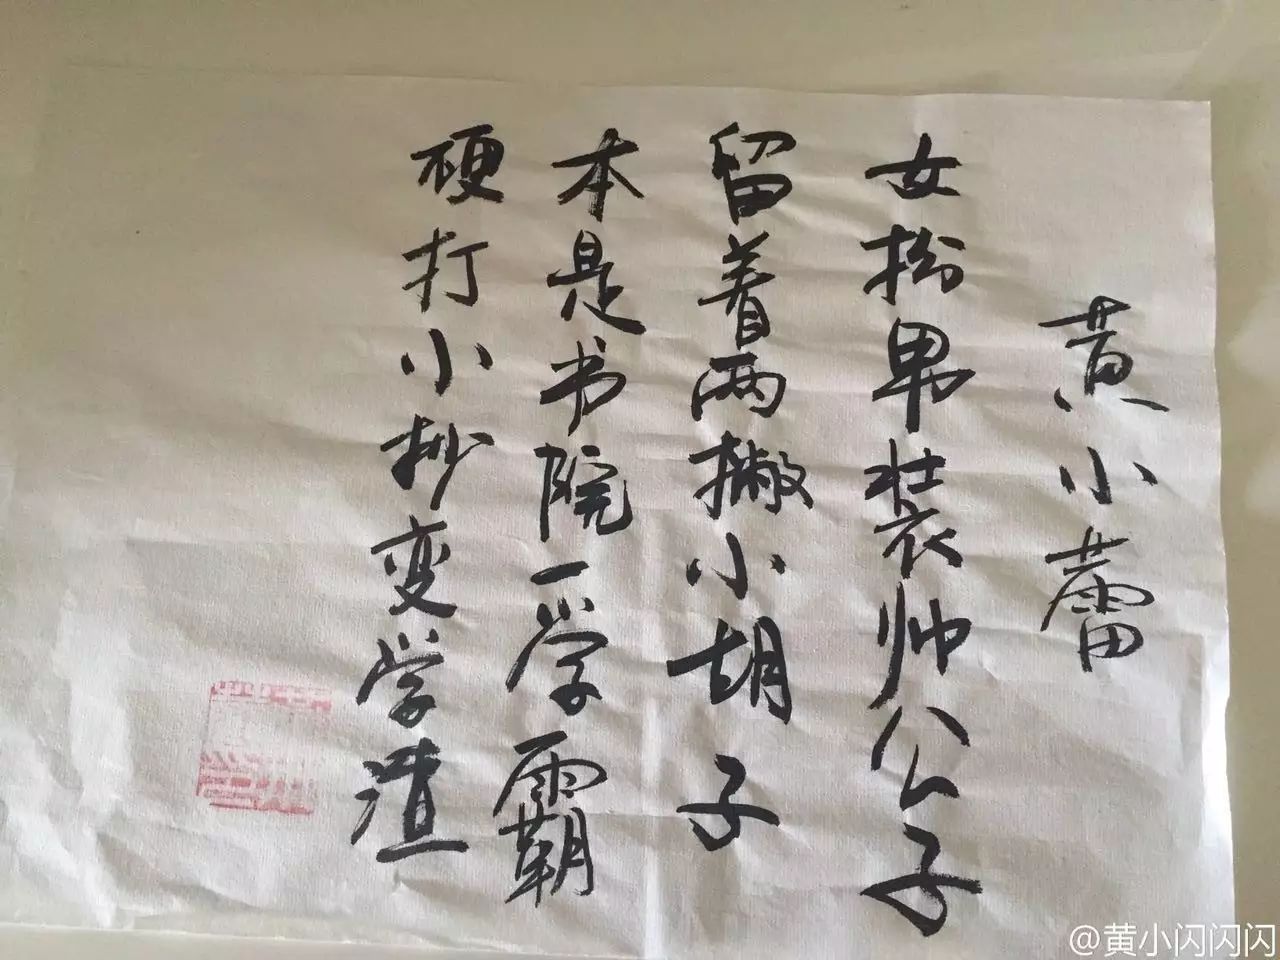 黄小蕾
女扮男装帅公子
留着两撇小胡子
本是书院一学霸
硬打小抄变学渣
@黄小闪闪闪